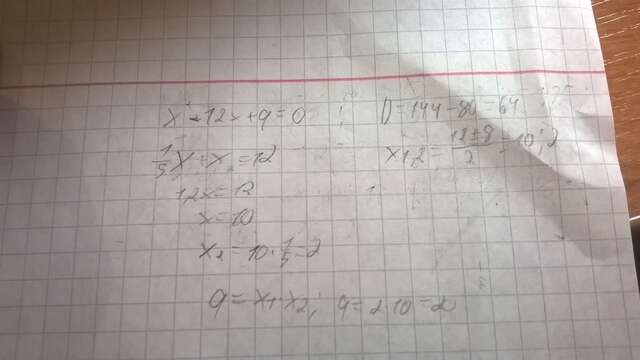 x² - 12x + q = 0; D = 144 - 80 = 64
1/5 x + x = 12 x1,2 = (12 ± 8)/2 = 10; 2
1,2x = 12
x = 10
x2 = 10 · 1/5 = 2
q = x1 · x2; q = 2 · 10 = 20